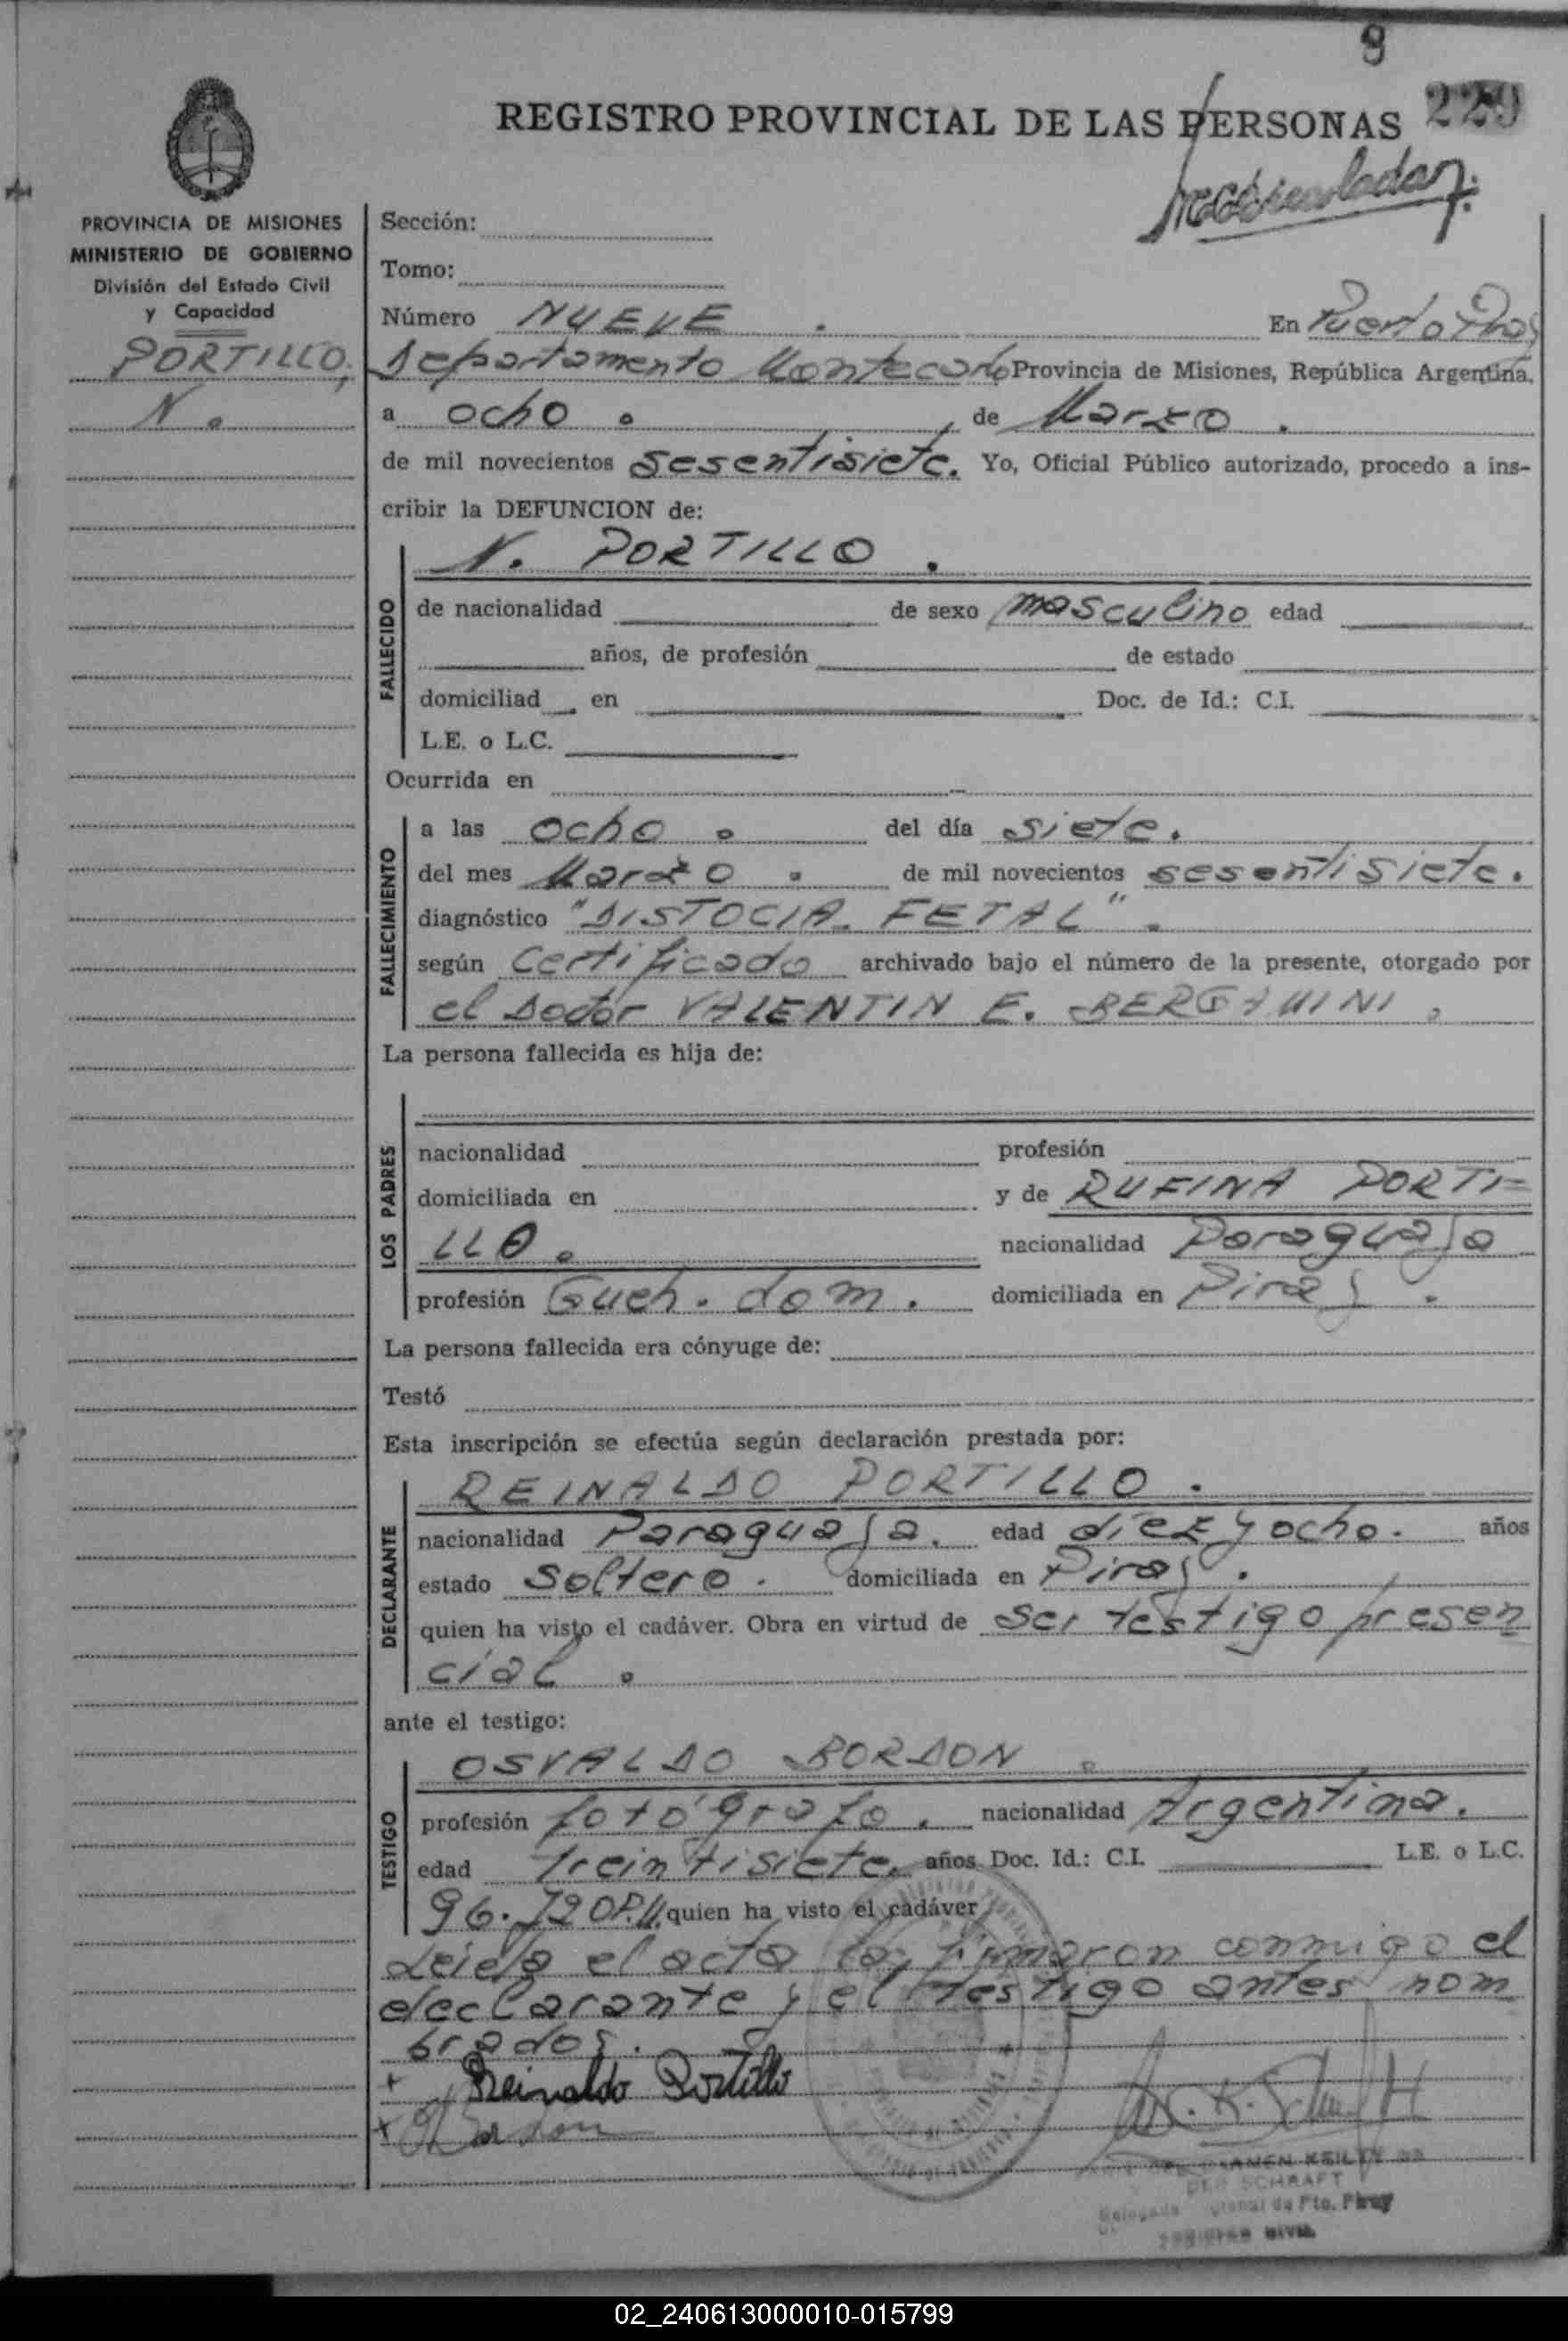 9
REGISTRO PROVINCIAL DE LAS PERSONAS 229
PROVINCIA DE MISIONES
MINISTERIO DE GOBIERNO
División del Estado Civil
y Capacidad
PORTILLO,
N.
Sección:
Tomo:
Número NUEVE . En Puerto Piray
Departamento Montecarlo Provincia de Misiones, República Argentina,
a ocho . de Marzo .
de mil novecientos sesentisiete. Yo, Oficial Público autorizado, procedo a ins-
cribir la DEFUNCION de:
FALLECIDO
N. PORTILLO .
de nacionalidad de sexo masculino edad
años, de profesión de estado
domiciliad en Doc. de Id.: C.I.
L.E. o L.C.
Ocurrida en
FALLECIMIENTO
a las ocho . del día siete.
del mes Marzo . de mil novecientos sesentisiete.
diagnóstico "DISTOCIA FETAL" .
según certificado archivado bajo el número de la presente, otorgado por
el Doctor VALENTIN E. BERGAMINI .
La persona fallecida es hija de:
LOS PADRES
nacionalidad profesión
domiciliada en y de RUFINA PORTI=
LLO. nacionalidad Paraguaya
profesión Queh. dom. domiciliada en Piray .
La persona fallecida era cónyuge de:
Testó
Esta inscripción se efectúa según declaración prestada por:
DECLARANTE
REINALDO PORTILLO .
nacionalidad Paraguaya. edad diez y ocho. años
estado soltero . domiciliada en Piray .
quien ha visto el cadáver. Obra en virtud de ser testigo presen
cial .
ante el testigo:
TESTIGO
OSVALDO BORDON .
profesión fotógrafo . nacionalidad Argentina.
edad treintisiete. años Doc. Id.: C.I. L.E. o L.C.
96. quien ha visto el cadáver
Leída el acta la firmaron conmigo el
declarante y el testigo antes nom
brados.
+ Reinaldo Portillo
+ Bordon
KEILTY DE
DER SCHRAFT
de Pto. Piray
02_240613000010-015799